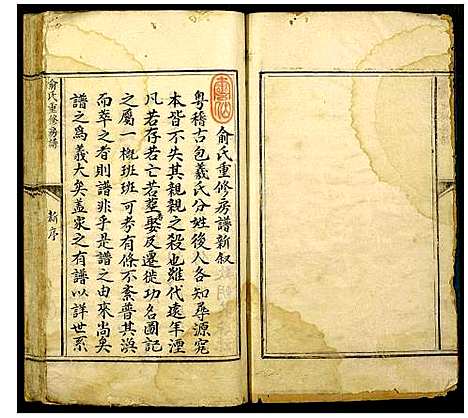 俞氏重修房譜新叙
粵稽古包羲氏分姓後人各知尋源究
本皆不失其親親之殺也雖代遠年湮
凡若存若亡若塟若娶及遷徙功名圖記
之屬一概班班可考有條不紊普其渙
而萃之者則譜非乎是譜之由來尚矣
譜之為義大矣盖家之有譜以詳世系
俞氏重修房譜
新序